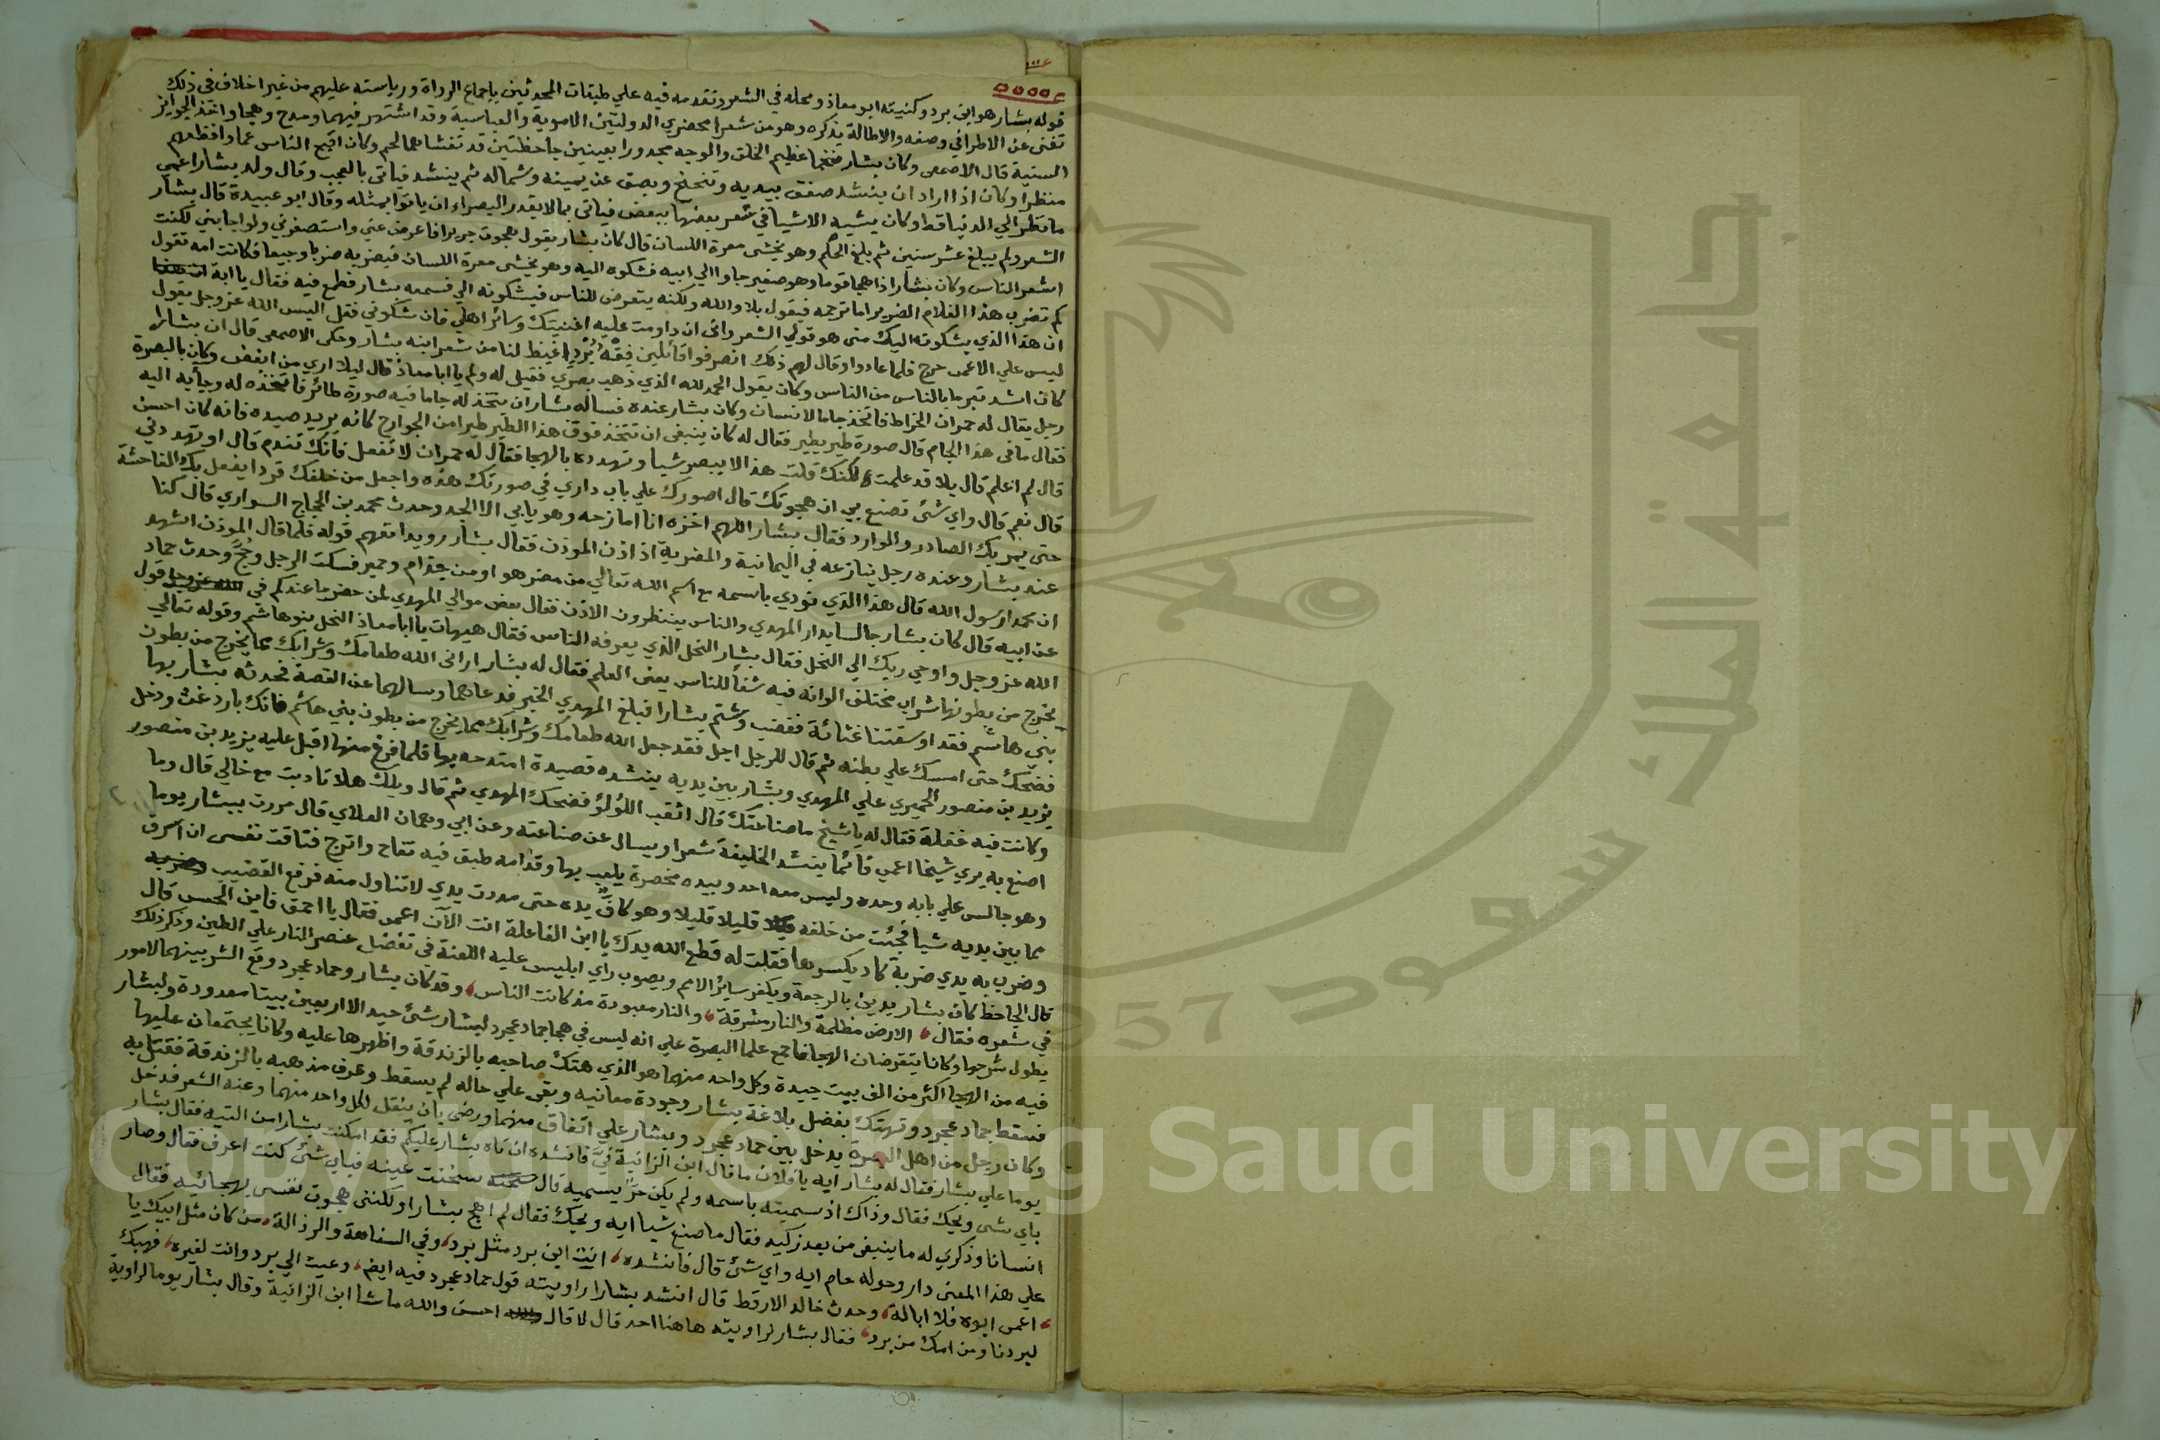 قوله بشار هو ابن برد وكنيته ابو معاذ ومحله في الشعر وتقدمه فيه علي طبقات المحدثين باجماع الرواة ورياسته عليهم من غير اخلاف في ذلك
تغني عن الاطرا في وصفه والاطالة بذكره وهو من شعرا مخضرمي الدولتين الاموية والعباسية وقد اشتهر فيهما ومدح وهجا واخذ الجوايز
السنية قال الاصمعي وكان بشار ضخما عظيم الخلق والوجه مجدورا بعينين جاحظتين قد تغشاهما لحم وكان اقبح الناس عما وافظعهم
منظرا وكان اذا اراد ان ينشد صفق بيديه وتنحنح وبصق عن يمينه وشماله ثم ينشد فياتي بالعجب وقال ولد بشار اعمي
ما نظر الي الدنيا قط وكان يشبه الاشيا في شعر بعضها ببعض فياتي بما لا يقدر البصراء ان ياتوا بمثله وقال ابو عبيدة قال بشار
الشعر ولم يبلغ عشر سنين ثم بلغ الحكم وهو يخشى معرة اللسان قال كان بشار يقول هجوت جريرا فاعرض عني واستصغرني ولو اجابني لكنت
اشعر الناس وكان بشار اذا هجا قوما وهو صغير جاوا الي ابيه فشكوه اليه وهو يخشى معرة اللسان فيضربه ضربا وجيعا فكانت امه تقول
كم تضرب هذا الغلام الضرير اما ترحمه فيقول بلا والله ولكنه يتعرض للناس فيشكونه الي فسمعه بشار فطمع فيه فقال يا ابة
ان هذا الذي يشكونه اليك مني هو قولي الشعر واني ان داومت عليه اغنيتك وسائر اهلي فان شكوني فقل اليس الله عز وجل يقول
ليس علي الاعمى حرج فلما عادوا وقال لهم ذلك انصرفوا قائلين فقه برد اغيظ لنا من شعر ابنه بشار وحكى الاصمعي قال ان بشارا
كان اشد تبرما بالناس من الناس وكان يقول الحمد لله الذي ذهب بصري فقيل له ولم يا ابا معاذ قال ليلا اري من ابغض وكان بالبصرة
رجل يقال له حمران الخراط فاتخذ جاما لانسان وكان بشار عنده فساله بشار ان يتخذ له جاما فيه صورة طائر فاتخذه له وجا به اليه
فقال ما في هذا الجام قال صورة طير يطير فقال له كان ينبغي ان تتخذ فوق هذا الطير طيرا من الجوارح كانه يريد صيده فانه كان احسن
قال لم اعلم قال بلا قد علمت ولكنك قلت هذا لا يبصر شيا وتهدده بالهجا فقال له حمران لا تفعل فانك تندم قال او تهددني
قال نعم قال واي شئ تصنع بي ان هجوتك قال اصورك علي باب داري في صورتك هذه واجعل من خلفك قردا يفعل بك الفاحشة
حتى يمر بك الصادر والوارد فقال بشار اللهم اخزه انا امازحه وهو يابي الا الجد وحدث محمد بن الحجاج السواري قال كنا
عند بشار وعنده رجل ينازعه في اليمانية والمضرية اذ اذن الموذن فقال بشار رويدا تفهم قوله فلما قال الموذن اشهد
ان محمدا رسول الله قال هذا الذي نودي باسمه مع اسم الله تعالي من مضر هو او من جذام وحمير فسكت الرجل وحدث حماد
عن ابيه قال كان بشار جالسا بدار المهدي والناس ينتظرون الاذن فقال بعض موالي المهدي لمن حضر ما عندكم في قول
الله عز وجل واوحي ربك الي النحل فقال بشار النحل الذي يعرفه الناس فقال هيهات يا ابا معاذ النحل بنو هاشم وقوله تعالي
يخرج من بطونها شراب مختلف الوانه فيه شفا للناس يعني العلم فقال له بشار اراني الله طعامك وشرابك مما يخرج من بطون
بني هاشم فقد اوسقتنا غثاثة فغضب وشتم بشارا فبلغ المهدي الخبر فدعا بهما وسالهما عن القصة فحدثه بشار بها
فضحك حتى امسك علي بطنه ثم قال للرجل اجل فقد جعل الله طعامك وشرابك مما يخرج من بطون بني هاشم فانك بارد غث ودخل
يزيد بن منصور الحميري علي المهدي وبشار بين يديه ينشده قصيدة امتدحه بها فلما فرغ منها اقبل عليه يزيد بن منصور
وكانت فيه غفلة فقال له يا شيخ ما صناعتك قال اثقب اللؤلؤ فضحك المهدي ثم قال ويلك هلا تادبت مع خالي قال وما
اصنع به يري شيخا اعمي قائما ينشد الخليفة شعرا ويسال عن صناعته وعن ابي دهمان الغلابي قال مررت ببشار يوما
وهو جالس علي بابه وحده وليس معه احد وبيده مخصرة يلعب بها وقدامه طبق فيه تفاح واترج فتاقت نفسي ان اسرق
مما بين يديه شيا فجئت من خلفه قليلا قليلا وهو كاف يده حتى مددت يدي لاتناول منه فرفع القضيب
وضرب به يدي ضربة كاد يكسرها فقلت له قطع الله يدك يا ابن الفاعلة انت الان اعمى فقال يا احمق فاين الحس قال
قال الجاحظ كان بشار يدين بالرجعة ويكفر ساير الامم ويصوب راي ابليس عليه اللعنة في تفضل عنصر النار علي الطين وذكر ذلك
في شعره فقال الارض مظلمة والنار مشرقة والنار معبودة مذ كانت الناس وقد كان بشار وحماد عجرد وقع الشر بينهما لامور
يطول شرحها وكانا يتقرضان الهجا فاجمع علما البصرة علي انه ليس في هجا حماد عجرد لبشار شئ جيد الا اربعين بيتا معدودة ولبشار
فيه من الهجا اكثر من الف بيت جيدة وكل واحد منهما هو الذي هتك صاحبه بالزندقة واظهرها عليه وكانا يجتمعان عليها
فسقط حماد عجرد وتهتك بفضل بلاغة بشار وجودة معانيه وبقى علي حاله لم يسقط وعرف مذهبه بالزندقة فقتل به
وكان رجل من اهل البصرة يدخل بين حماد عجرد وبشار علي اتفاق منهما ورضى بان ينقل لكل واحد منهما وعنه الشعر فدخل
يوما علي بشار فقال له بشار ايه يا فلان ما قال ابن الزانية في فانشده ان تاه بشار عليكم فقد امكنت بشارا من التيه فقال بشار
باي شي ويحك فقال وذاك اذ سميته باسمه ولم يكن حر يسميه قال سخنت عينه فباي شئ كنت اعرف فقال وصار
انسانا وذكري له ما ينبغي من بعد زكيه فقال ما صنع شيا ايه ويحك فقال لم اهج بشارا ولكنني هجوت نفسي بهجائيه فقال
علي هذا المعنى دار وحوله حام ايه واي شئ قال فانشده انت ابن برد مثل برد وفي السفاهة والرذالة من كان مثل ابيك يا
اعمى ابوه فلا ابا له وحدث خالد الارقط قال انشد بشارا راويته قول حماد عجرد فيه ايضا دعيت الي برد وانت لغيره فهبك
لبرد نا ومن امك من برد فقال بشار لراويته هاهنا احد قال لا قال احسن والله ما شا ابن الزانية وقال بشار يوما لراوية
جامعة الملك سعود
1957
Copyright © King Saud University